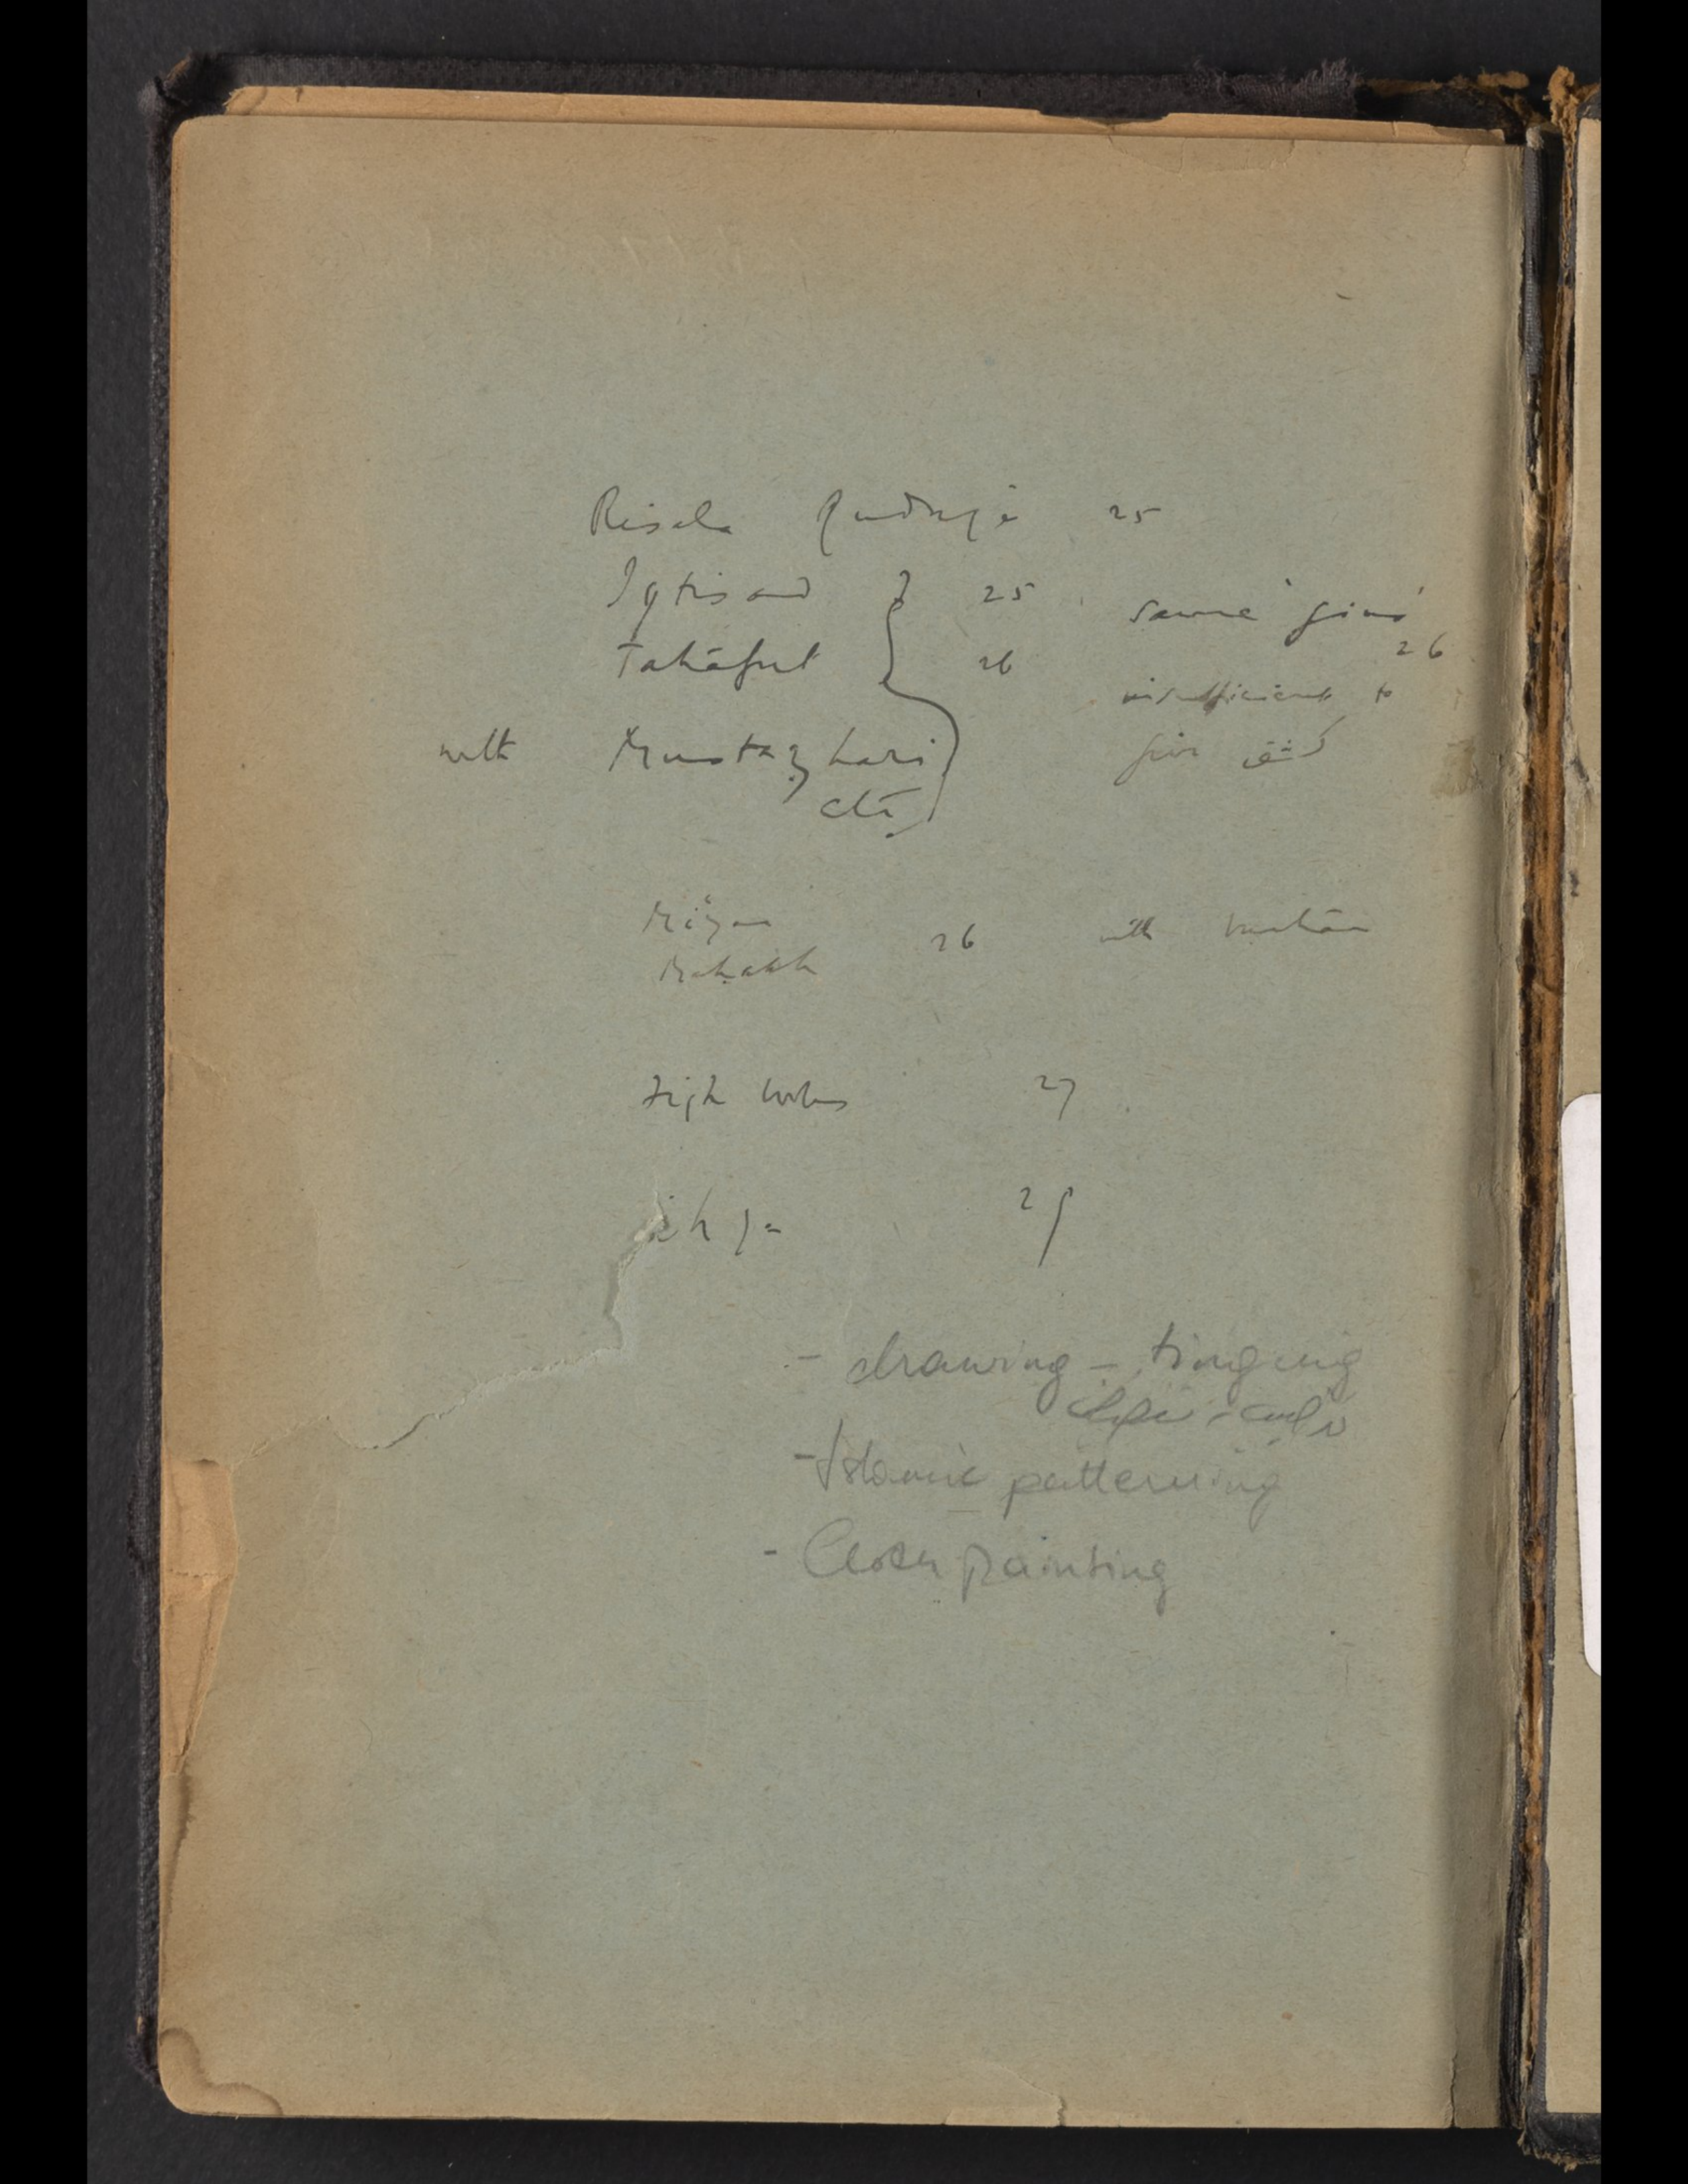 Risala Qudsiya 25
Iqtisad } 25 same gives 26
Tahāfut 26 insufficient to
with Mustaẓhari give كشف
etc
Mi'yar
Mahakk 26 with burhān
fiqh works 27
ihya
- drawing - tinging
- Islamic patterning
- Cloth painting